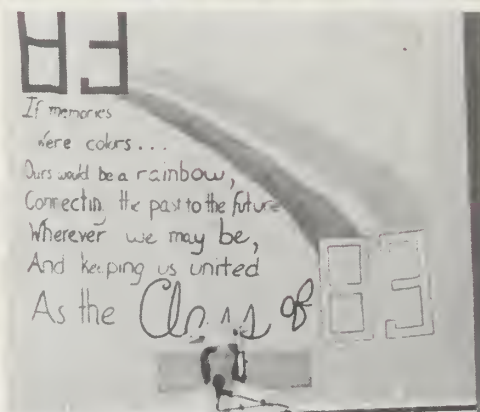 83
If memories
were colors...
Ours would be a rainbow,
Connectin the past to the future
Wherever we may be,
And keeping us united
As the Class of